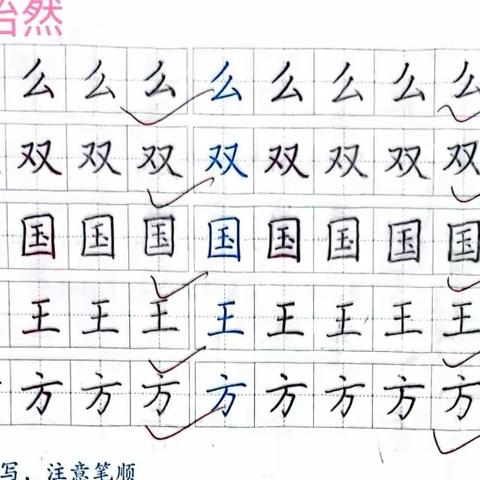 怡然
么么么么么么么么
双双双双双双双双
国国国国国国国国
王王王王王王王王
方方方方方方方方
写，注意笔顺